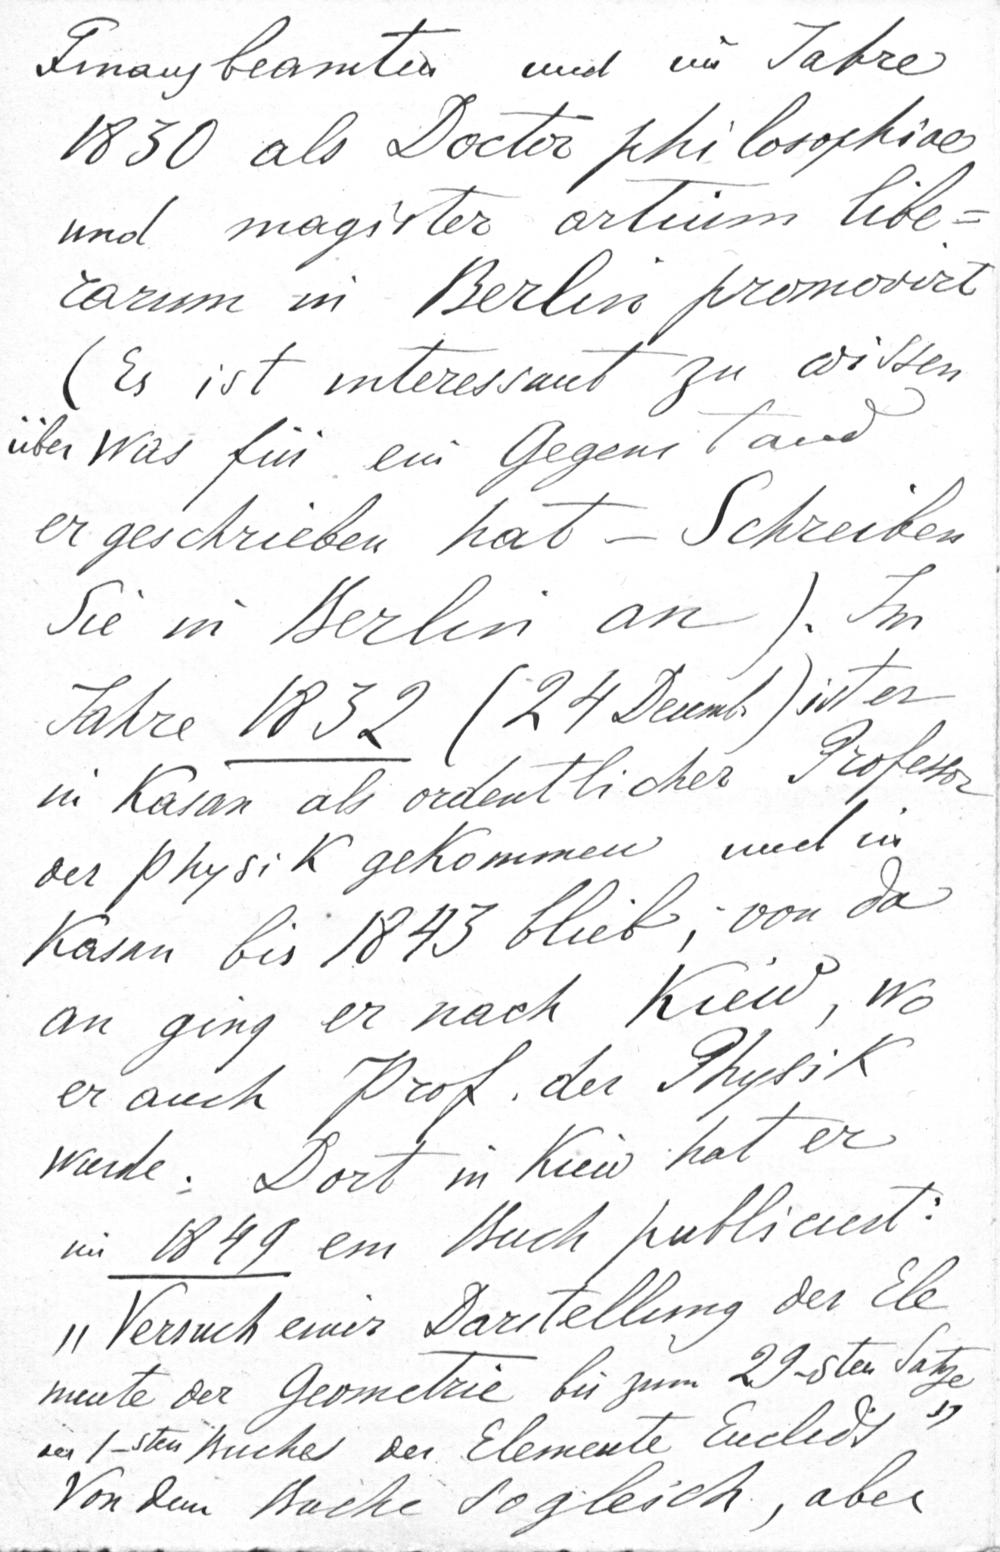 Finanzbeamten und im Jahre
1830 als Doctor philosophiae
und magister artium libe=
rarum in Berlin promovirt
(Es ist interessant zu wissen
über was für ein Gegenstand
er geschrieben hat – Schreiben
Sie in Berlin an). Im
Jahre 1832 (24 Decemb.) ist er
in Kasan als ordentlicher Professor
der Physik gekommen und in
Kasan bis 1843 blieb; von da
an ging er nach Kiew, wo
er auch Prof. der Physik
wurde. Dort in Kiew hat er
im 1849 ein Buch publiciert:
„Versuch einer Darstellung der Ele
mente der Geometrie bis zum 29-sten Satze
des 1-sten Buches der Elemente Euclid's"
Von dem Buche sogleich, aber